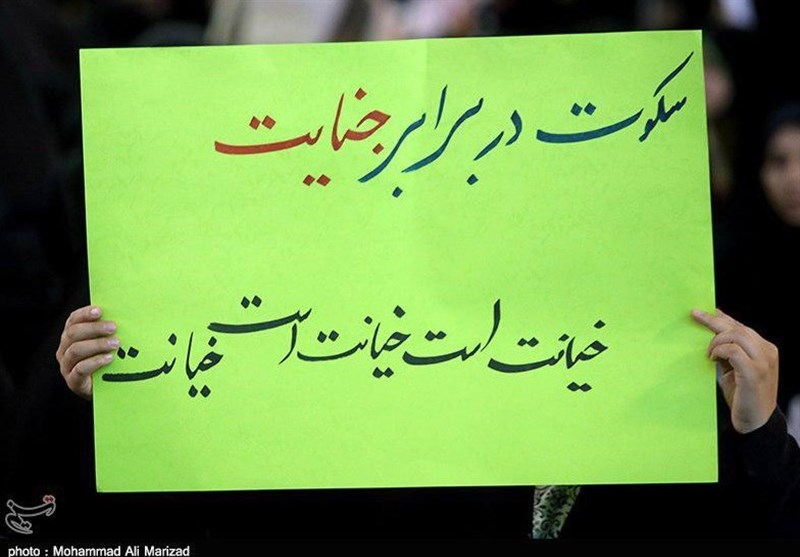 سکوت در برابر جنایت
خیانت است خیانت است خیانت
تسنیم
photo : Mohammad Ali Marizad